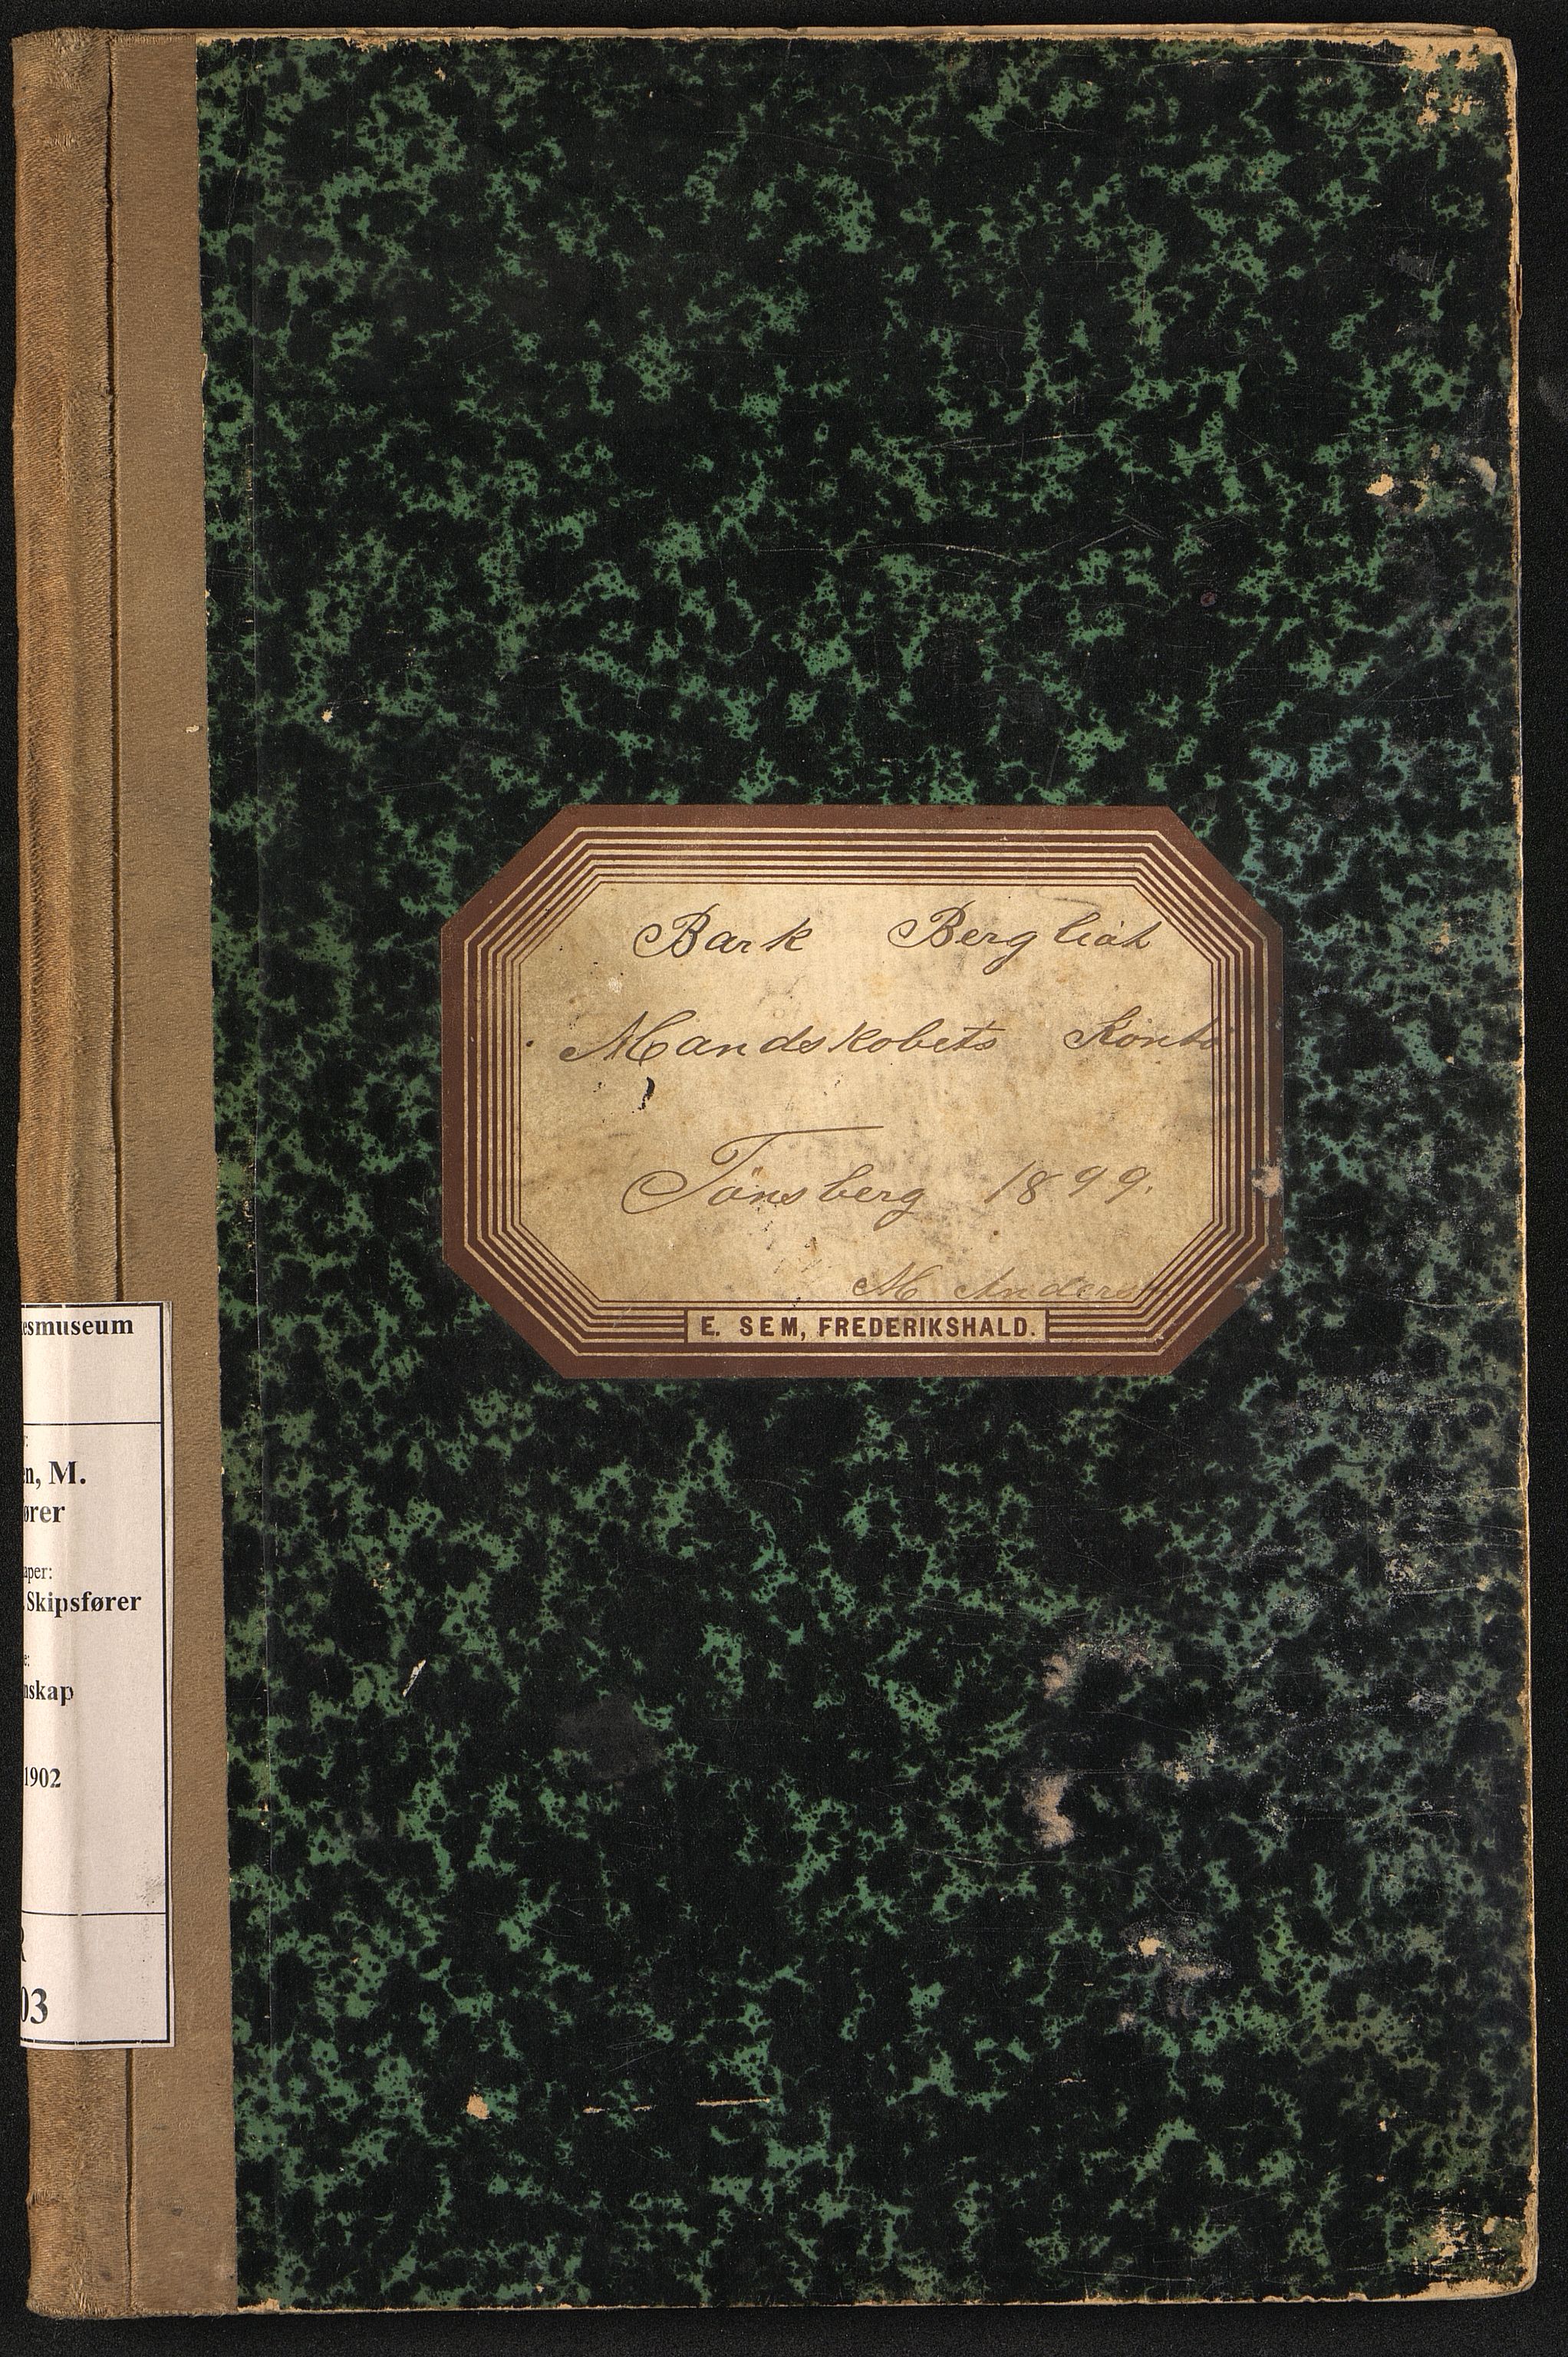 Bark Bergliot
Mandskobets Konto
Tönsberg 1899.
M Anders
E. SEM, FREDERIKSHALD.
esmuseum
en, M.
ører
aper:
Skipsfører
e:
nskap
1902
R
03